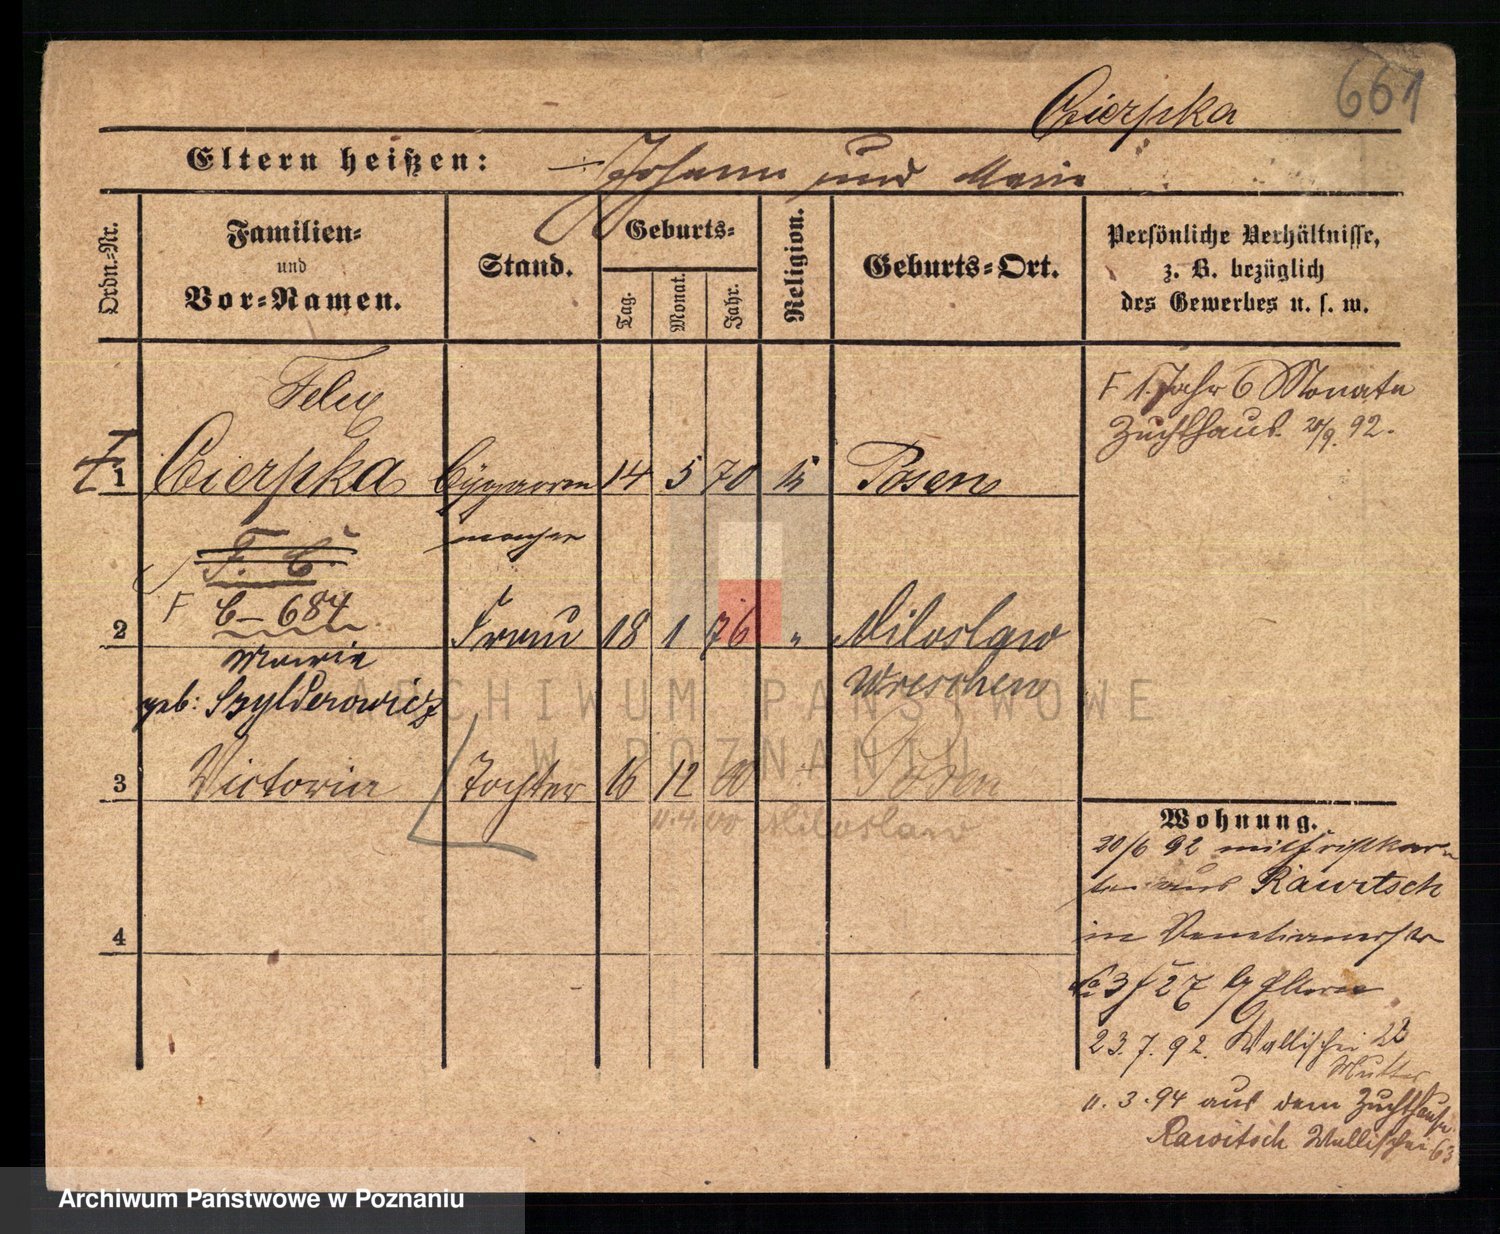 661
Cierpka
Eltern heißen: Johann und Marie
Ordn.-Nr.
Familien-
und
Vor-Namen.
Stand.
Geburts-
Tag.
Monat.
Jahr.
Religion.
Geburts-Ort.
Persönliche Verhältnisse,
z. B. bezüglich
des Gewerbes u. s. w.
Felix
1 Cierpka 14 5 70 Posen
macher
F. C.
F C – 684
2 Frau 18 1 76 " Miloslaw
Marie Wreschen
geb: Szylderowicz
3 Victoria Tochter 16 12 Posen
11.4.00 Miloslaw
4
F 1 Jahr 6 Monate
Zuchthaus. 20/9. 92.
Wohnung.
20/6 92
aus Rawitsch
in
No 3 27 Eltern
23.7.92. Wallischei
Mutter
11.3.94 aus dem Zuchthause
Rawitsch Wallischei 63
ARCHIWUM PAŃSTWOWE
W POZNANIU
Archiwum Państwowe w Poznaniu